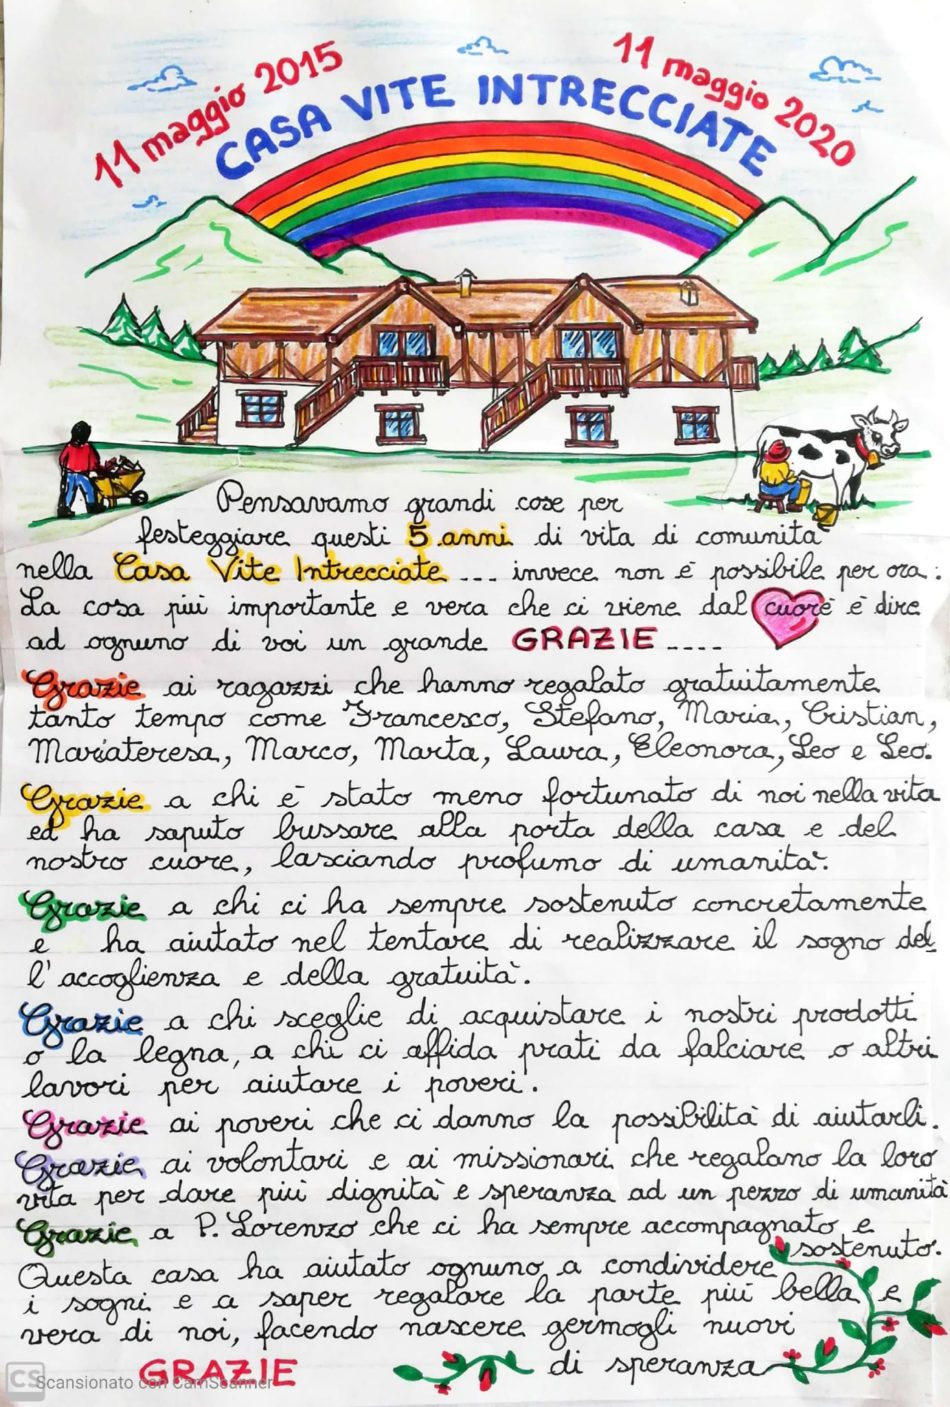 11 maggio 2015
11 maggio 2020
CASA VITE INTRECCIATE
Pensavamo grandi cose per
festeggiare questi 5 anni di vita di comunità
nella Casa Vite Intrecciate... invece non è possibile per ora:
La cosa più importante e vera che ci viene dal cuore è dire
ad ognuno di voi un grande GRAZIE ....
Grazie ai ragazzi che hanno regalato gratuitamente
tanto tempo come Francesco, Stefano, Maria, Cristian,
Mariateresa, Marco, Marta, Laura, Eleonora, Leo e Leo.
Grazie a chi è stato meno fortunato di noi nella vita
ed ha saputo bussare alla porta della casa e del
nostro cuore, lasciando profumo di umanità.
Grazie a chi ci ha sempre sostenuto concretamente
e ha aiutato nel tentare di realizzare il sogno del
l'accoglienza e della gratuità.
Grazie a chi sceglie di acquistare i nostri prodotti
o la legna, a chi ci affida prati da falciare o altri
lavori per aiutare i poveri.
Grazie ai poveri che ci danno la possibilità di aiutarli.
Grazie ai volontari e ai missionari che regalano la loro
vita per dare più dignità e speranza ad un pezzo di umanità
Grazie a P. Lorenzo che ci ha sempre accompagnato e
sostenuto.
Questa casa ha aiutato ognuno a condividere
i sogni e a saper regalare la parte più bella e
vera di noi, facendo nascere germogli nuovi
di speranza
GRAZIE
CS Scansionato con CamScanner